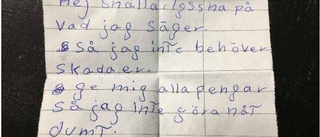 Hej snälla lyssna på
vad jag säger.
så jag inte behöver
skada er.
ge mig alla pengar
så jag inte göra nåt
dumt.